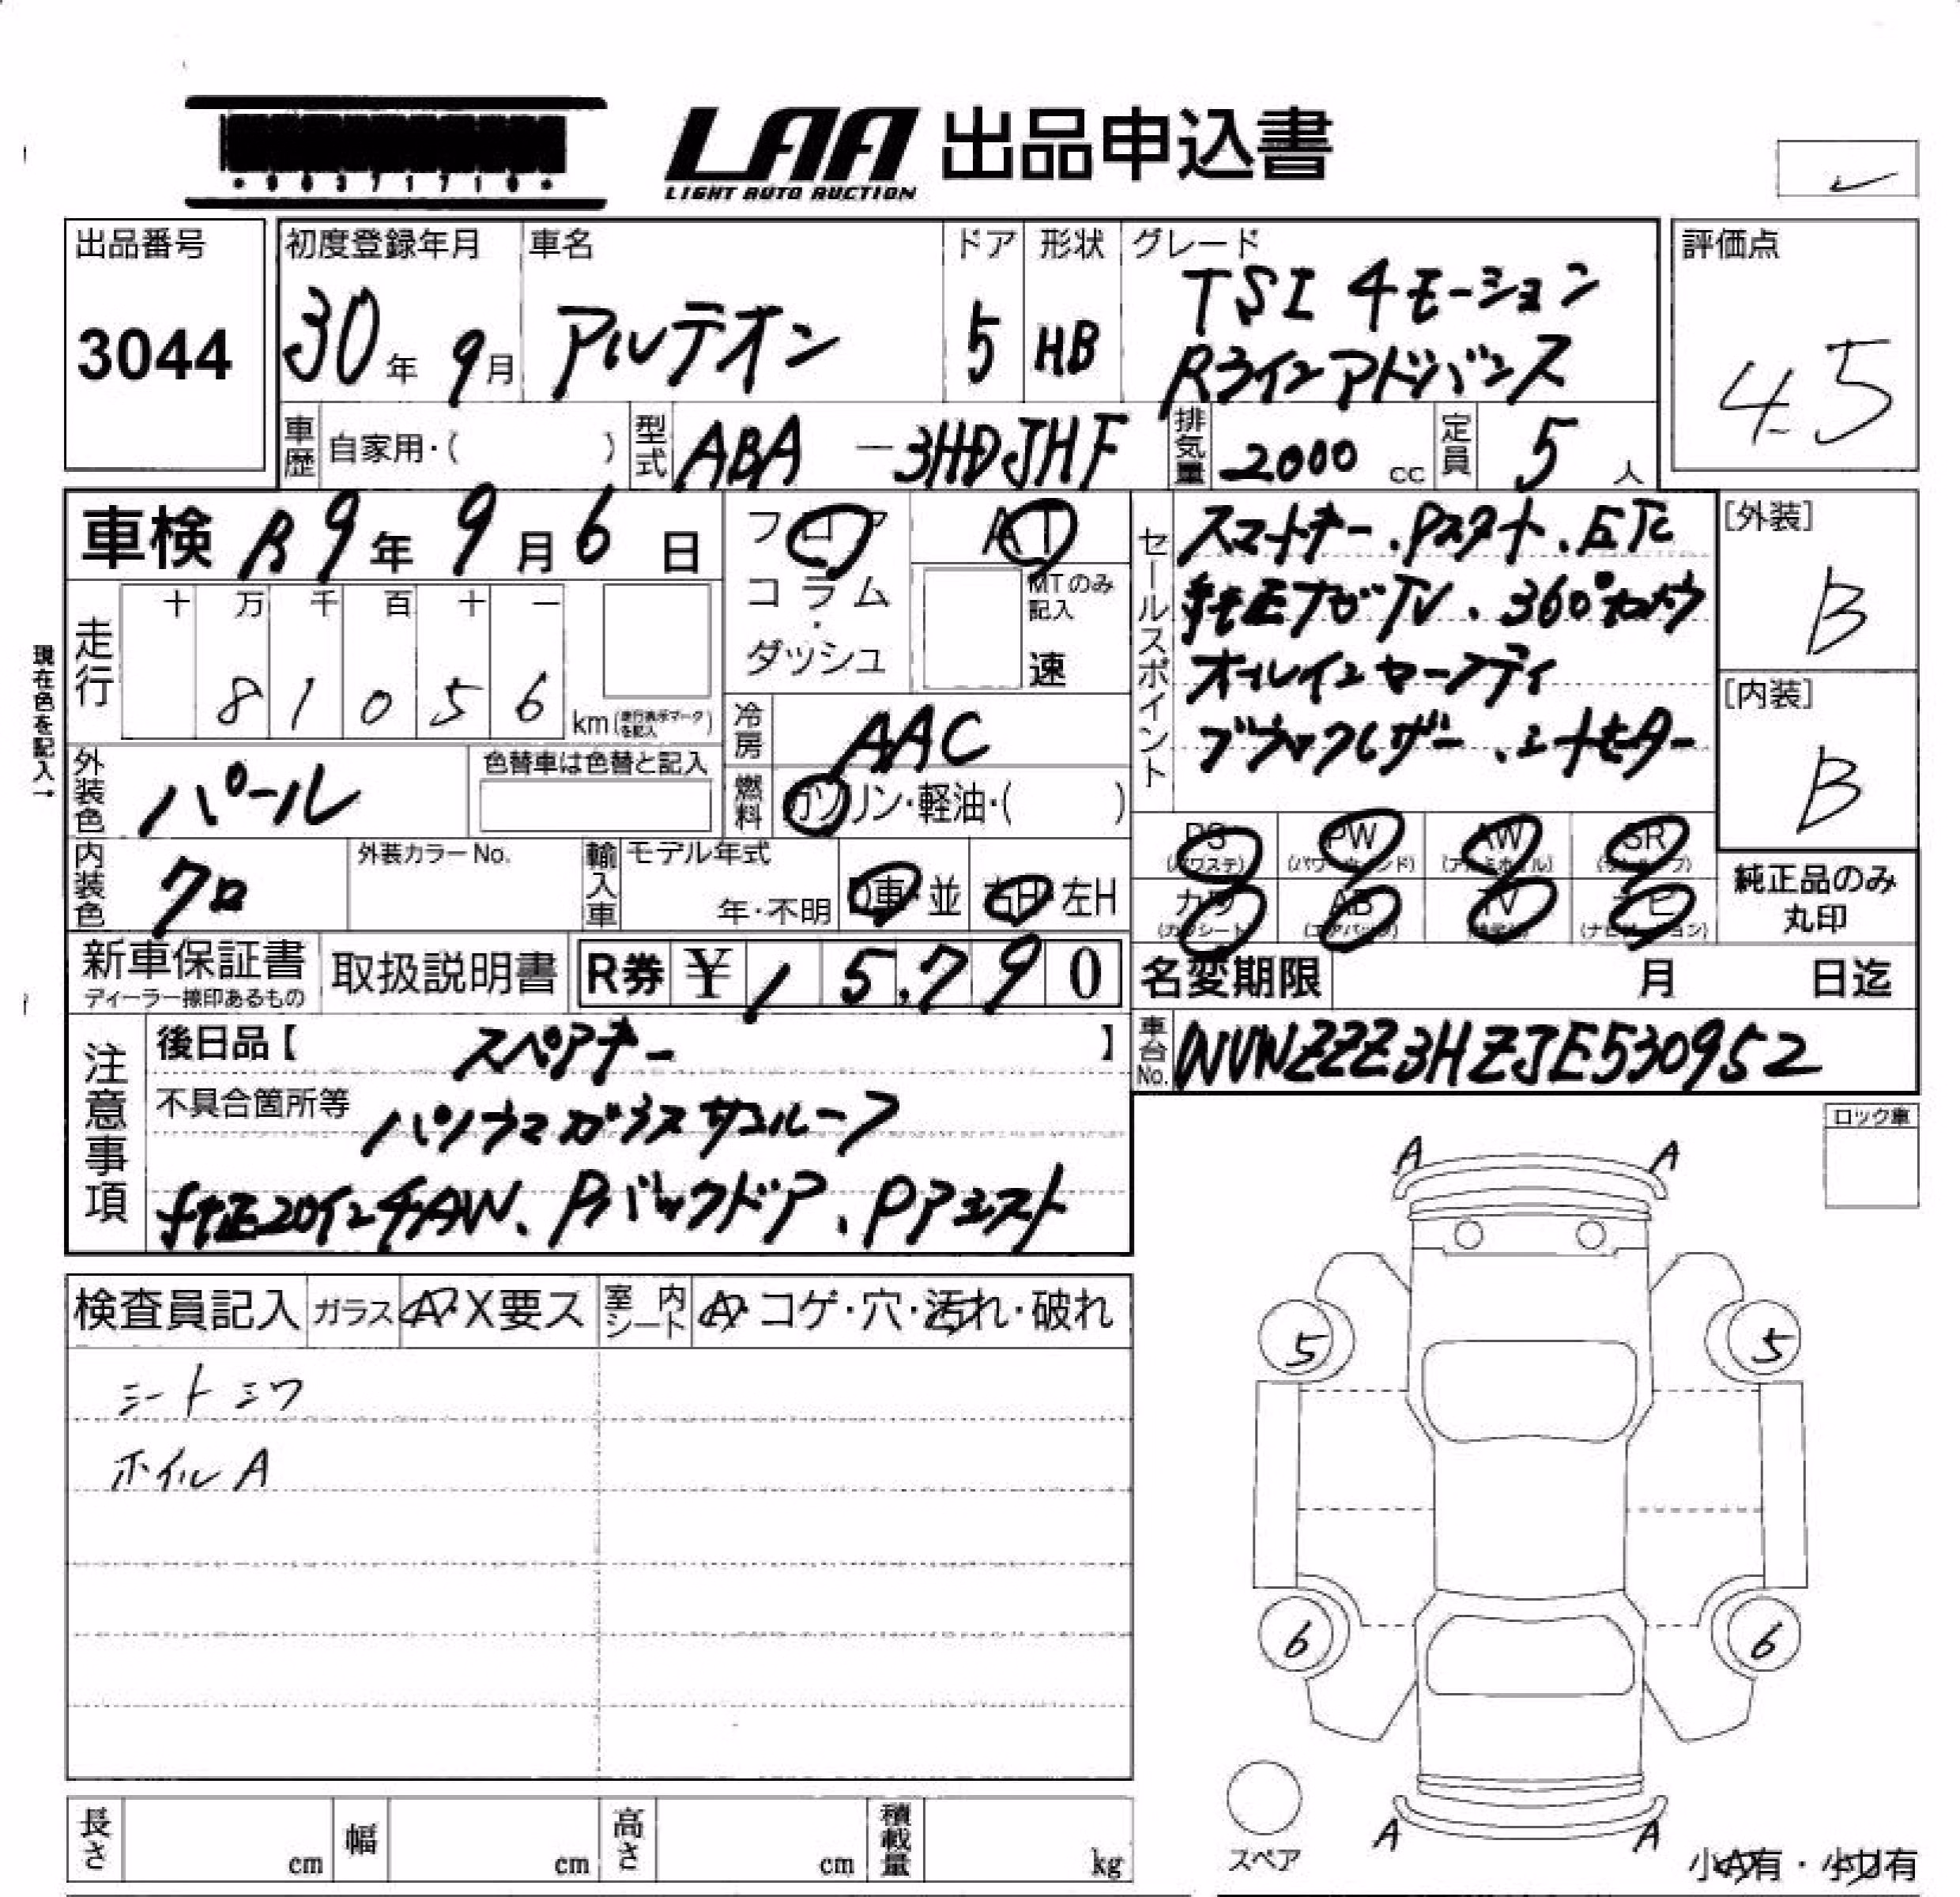 LAA 出品申込書
LIGHT AUTO AUCTION
出品番号
3044
初度登録年月
30年 9月
車名
アルテオン
ドア
5
形状
HB
グレード
TSI 4モーション
Rラインアドバンス
評価点
4.5
車歴 自家用・( )
型式 ABA-3HDJHF
排気量 2000 cc
定員 5人
車検 R9年9月6日
フロア
コラム・
ダッシュ
AT
MTのみ
記入
速
セールスポイント
スマートキー.Pスタート.ETC
純正ナビTV.360°カメラ
オールインセーフティ
ブラックレザー.シートヒーター
[外装]
B
[内装]
B
走行
十 万 千 百 十 一
8 1 0 5 6 km(走行表示マークを記入)
現在色を記入→
冷房 AAC
外装色 パール
色替車は色替と記入
燃料 ガソリン・軽油・( )
内装色 クロ
外装カラーNo.
輸入車
モデル年式
年・不明
D車・並
右H・左H
PS (パワステ)
PW (パワーウィンド)
AW (アルミホイル)
SR (サンルーフ)
カワ (カワシート)
AB (エアバック)
TV
ナビ (ナビゲーション)
純正品のみ
丸印
新車保証書
ディーラー捺印あるもの
取扱説明書
R券 ¥ 15,790
名変期限 月 日迄
車台No. WVWZZZ3HZJE530952
注意事項
後日品【 スペアキー 】
不具合箇所等 パノラマガラスサンルーフ
純正20インチAW、Pバックドア、Pアシスト
ロック車
検査員記入
ガラス A・X要ス
室内シート A・コゲ・穴・汚れ・破れ
シートシワ
ホイルA
A A
5 5
6 6
A A
スペア
小A有・小U有
長さ cm
幅 cm
高さ cm
積載量 kg